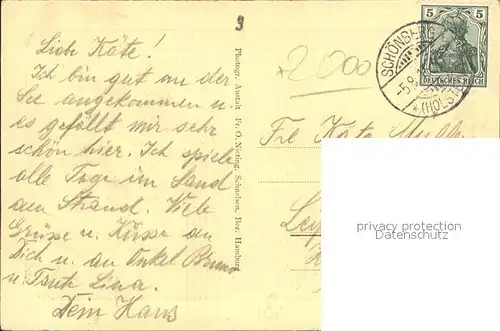 9
Liebe Käte!
Ich bin gut an der
See angekommen u.
es gefällt mir sehr
schön hier. Ich spiele
alle Tage im Sand
am Strand. Viele
Grüsse u. Küsse an
Dich u. an Onkel Bruno
u. Tante Lina.
Dein Hans
Photogr. Anstalt Fr. O. Nirting, Schnelsen, Bez. Hamburg
2000
5 5
DEUTSCHES REICH
SCHÖNBERG
(HOLST)
Frl Käte
privacy protection
Datenschutz